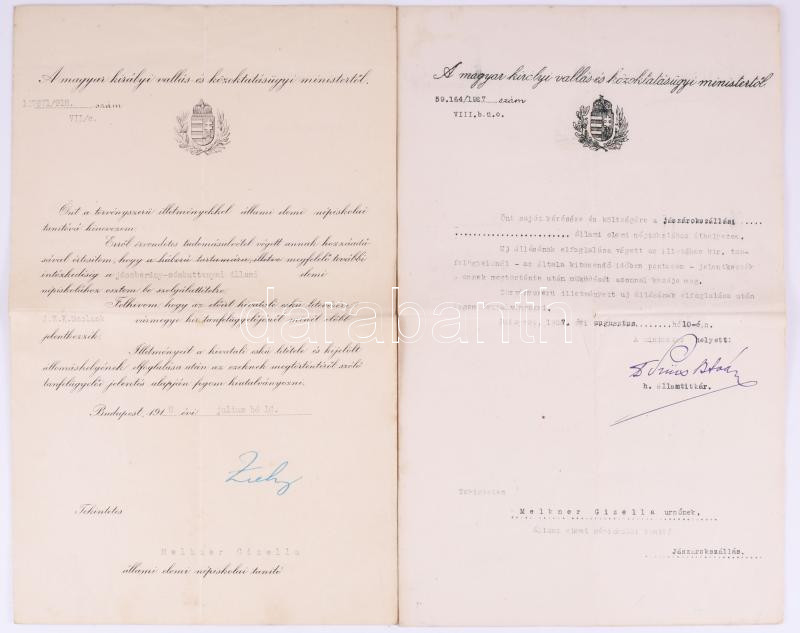 A magyar királyi vallás és közoktatásügyi ministertől.
szám
VII/c.
Önt a törvényszerű illetményekkel állami elemi népiskolai
tanítóvá kinevezem.
Erről örvendetes tudomásulvétel végett annak hozzáadá-
sával értesítem, hogy a háború tartamára, illetve megfelelő további
intézkedésig a jászberény-sóskuttanyai állami elemi
népiskolához osztom be szolgálattételre.
Felhívom, hogy az előírt hivatali eskü letevésére
J.N.K.Szolnok vármegye kir. tanfelügyelőjénél minél előbb
jelentkezzék.
Illetményeit a hivatali eskü letétele és kijelölt
állomáshelyének elfoglalása után az ezeknek megtörténtéről szóló
tanfelügyelői jelentés alapján fogom kiutalványozni.
Budapest, 1918 évi julius hó 10.
Zichy
Tekintetes
Melkner Gizella
állami elemi népiskolai tanító
A magyar királyi vallás és közoktatásügyi ministertől.
59.164/1927 szám
VIII.b.ü.o.
Önt saját kérésére és költségére a jászárokszállási
állami elemi népiskolához áthelyezem.
Uj állásának elfoglalása végett az illetékes kir. tan-
felügyelőnél - az általa kitüzendő időben pontosan - jelentkezzék
s ennek megtörténte után működését azonnal kezdje meg.
Törvényszerű illetményeit uj állásának elfoglalása után
Budapest, 1927. évi augusztus hó 10-én.
A miniszter helyett:
h. államtitkár.
Tekintetes
Melkner Gizella urnőnek,
állami elemi népiskolai tanító
Jászárokszállás.
darabanth